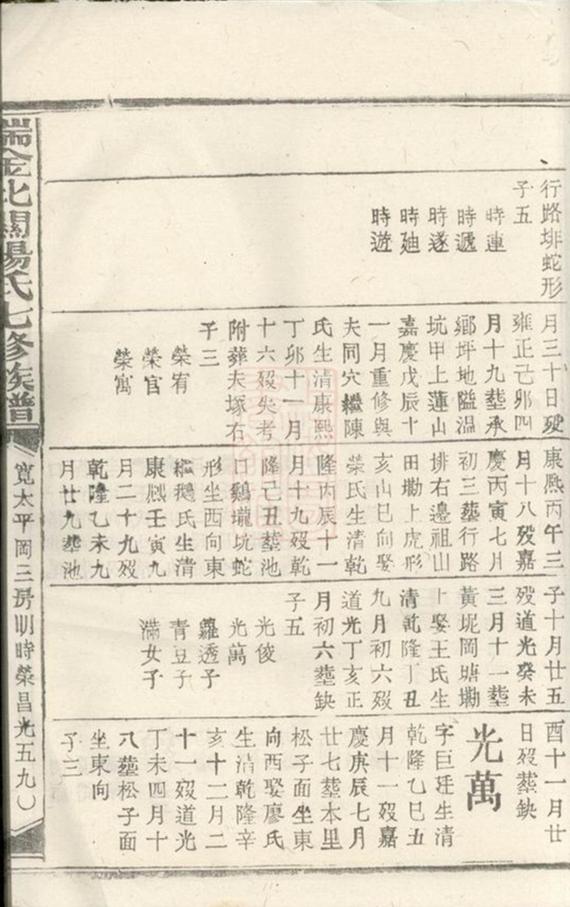 瑞金北關楊氏七修族譜
寬太平岡三房明時榮昌光五九
行路排蛇形
子五
時連
時遞
時遂
時廸
時遊
月三十日歿
雍正己卯四
月十九塟承
鄉坪地隘温
坑甲上蓮山
嘉慶戊辰十
一月重修與
夫同穴繼陳
氏生清康熙
丁卯十一月
十六歿失考
附葬夫塚右
子三
榮宥
榮官
榮寓
康熙丙午三
月十八歿嘉
慶丙寅七月
初三塟行路
排右邊祖山
田墈上虎形
亥山巳向娶
榮氏生清乾
隆丙辰十一
月十九歿乾
隆己丑塟池
口鷄壠坑蛇
形坐西向東
繼鵝氏生清
康熙壬寅九
月二十九歿
乾隆乙未九
月廿九塟池
子十月廿五
歿道光癸未
三月十一塟
黃坭岡塘墈
上娶王氏生
清乾隆丁丑
九月初六歿
道光丁亥正
月初六塟鈌
子五
光俊
光萬
羅透子
青豆子
滿女子
酉十一月廿
日歿塟鈌
光萬
字巨珄生清
乾隆乙巳五
月十一歿嘉
慶庚辰七月
廿七塟本里
松子面坐東
向西娶廖氏
生清乾隆辛
亥十二月二
十一歿道光
丁未四月十
八塟松子面
坐東向
子三